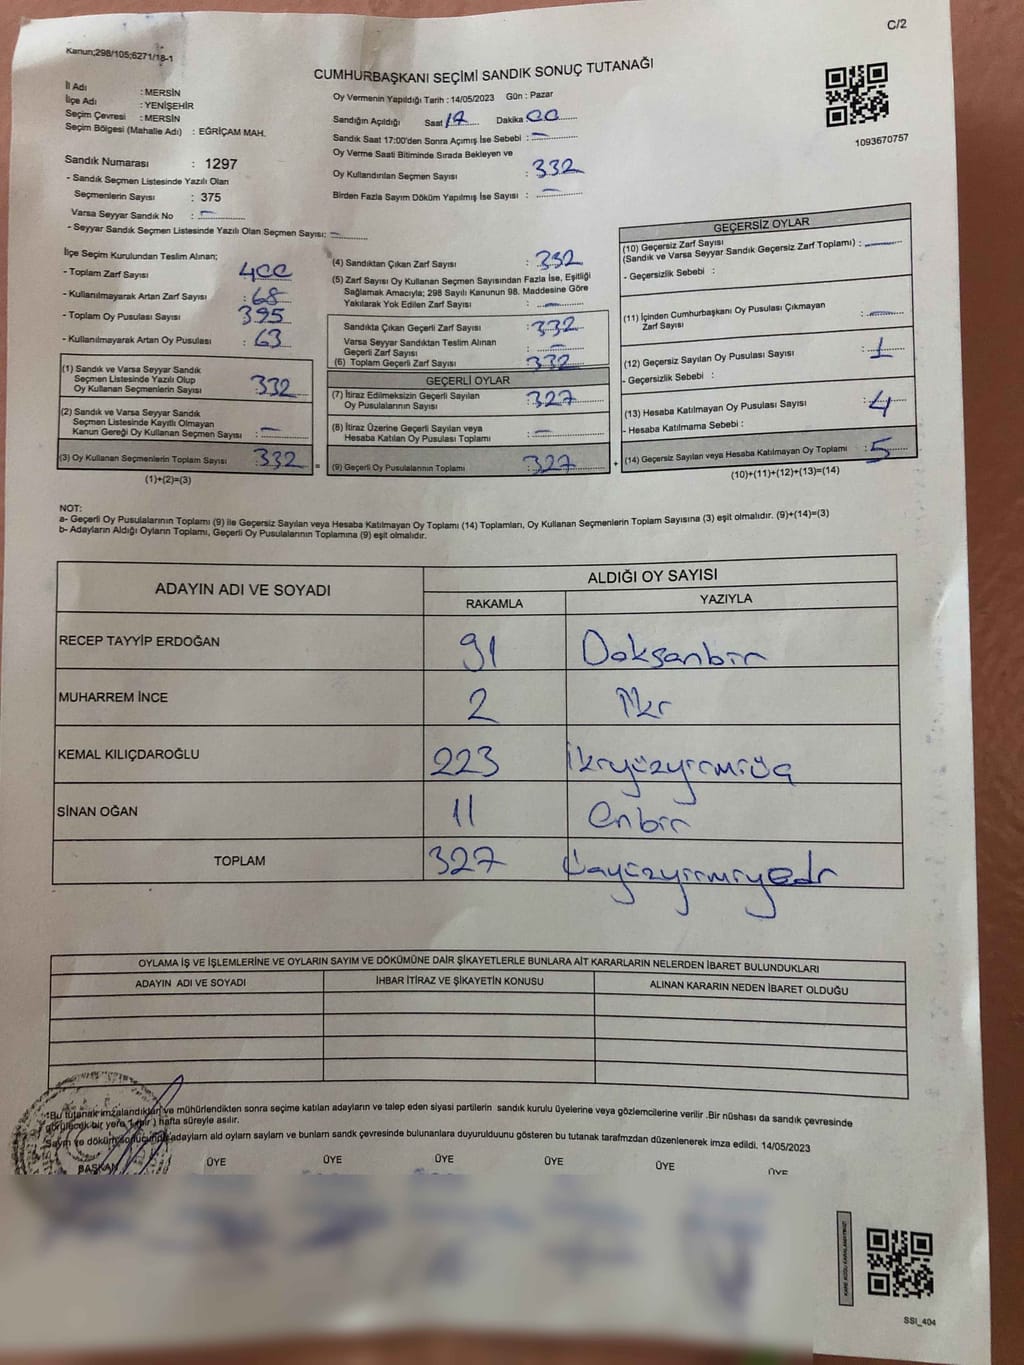 C/2
Kanun;298/105;6271/18-1
CUMHURBAŞKANI SEÇİMİ SANDIK SONUÇ TUTANAĞI
İl Adı : MERSİN
İlçe Adı : YENİŞEHİR
Seçim Çevresi : MERSİN
Seçim Bölgesi (Mahalle Adı) : EĞRİÇAM MAH.
Sandık Numarası : 1297
- Sandık Seçmen Listesinde Yazılı Olan
Seçmenlerin Sayısı : 375
Varsa Seyyar Sandık No : –
- Seyyar Sandık Seçmen Listesinde Yazılı Olan Seçmen Sayısı: –
Oy Vermenin Yapıldığı Tarih : 14/05/2023 Gün : Pazar
Sandığın Açıldığı Saat 17 Dakika 00
Sandık Saat 17:00'den Sonra Açımış İse Sebebi : –
Oy Verme Saati Bitiminde Sırada Bekleyen ve
Oy Kullandırılan Seçmen Sayısı : 332
Birden Fazla Sayım Döküm Yapılmış İse Sayısı : –
1093670757
İlçe Seçim Kurulundan Teslim Alınan;
- Toplam Zarf Sayısı 400
- Kullanılmayarak Artan Zarf Sayısı : 68
- Toplam Oy Pusulası Sayısı 395
- Kullanılmayarak Artan Oy Pusulası : 63
(1) Sandık ve Varsa Seyyar Sandık
Seçmen Listesinde Yazılı Olup
Oy Kullanan Seçmenlerin Sayısı 332
(2) Sandık ve Varsa Seyyar Sandık
Seçmen Listesinde Kayıtlı Olmayan
Kanun Gereği Oy Kullanan Seçmen Sayısı : –
(3) Oy Kullanan Seçmenlerin Toplam Sayısı : 332 =
(1)+(2)=(3)
(4) Sandıktan Çıkan Zarf Sayısı : 332
(5) Zarf Sayısı Oy Kullanan Seçmen Sayısından Fazla İse, Eşitliği
Sağlamak Amacıyla; 298 Sayılı Kanunun 98. Maddesine Göre
Yakılarak Yok Edilen Zarf Sayısı : –
Sandıkta Çıkan Geçerli Zarf Sayısı : 332
Varsa Seyyar Sandıktan Teslim Alınan
Geçerli Zarf Sayısı : –
(6) Toplam Geçerli Zarf Sayısı : 332
GEÇERLİ OYLAR
(7) İtiraz Edilmeksizin Geçerli Sayılan
Oy Pusulalarının Sayısı : 327
(8) İtiraz Üzerine Geçerli Sayılan veya
Hesaba Katılan Oy Pusulası Toplamı : –
(9) Geçerli Oy Pusulalarının Toplamı : 327 +
GEÇERSİZ OYLAR
(10) Geçersiz Zarf Sayısı
(Sandık ve Varsa Seyyar Sandık Geçersiz Zarf Toplamı) : –
- Geçersizlik Sebebi :
(11) İçinden Cumhurbaşkanı Oy Pusulası Çıkmayan
Zarf Sayısı : –
(12) Geçersiz Sayılan Oy Pusulası Sayısı : 1
- Geçersizlik Sebebi :
(13) Hesaba Katılmayan Oy Pusulası Sayısı : 4
- Hesaba Katılmama Sebebi :
(14) Geçersiz Sayılan veya Hesaba Katılmayan Oy Toplamı : 5
(10)+(11)+(12)+(13)=(14)
NOT:
a- Geçerli Oy Pusulalarının Toplamı (9) ile Geçersiz Sayılan veya Hesaba Katılmayan Oy Toplamı (14) Toplamları, Oy Kullanan Seçmenlerin Toplam Sayısına (3) eşit olmalıdır. (9)+(14)=(3)
b- Adayların Aldığı Oyların Toplamı, Geçerli Oy Pusulalarının Toplamına (9) eşit olmalıdır.
ADAYIN ADI VE SOYADI ALDIĞI OY SAYISI
RAKAMLA YAZIYLA
RECEP TAYYİP ERDOĞAN 91 Doksanbir
MUHARREM İNCE 2 İki
KEMAL KILIÇDAROĞLU 223 İkiyüzyirmiüç
SİNAN OĞAN 11 Onbir
TOPLAM 327 Üçyüzyirmiyedi
OYLAMA İŞ VE İŞLEMLERİNE VE OYLARIN SAYIM VE DÖKÜMÜNE DAİR ŞİKAYETLERLE BUNLARA AİT KARARLARIN NELERDEN İBARET BULUNDUKLARI
ADAYIN ADI VE SOYADI İHBAR İTİRAZ VE ŞİKAYETİN KONUSU ALINAN KARARIN NEDEN İBARET OLDUĞU
Bu tutanak imzalandıktan ve mühürlendikten sonra seçime katılan adayların ve talep eden siyasi partilerin sandık kurulu üyelerine veya gözlemcilerine verilir .Bir nüshası da sandık çevresinde
görülecek bir yere 1 (bir ) hafta süreyle asılır.
Sayım ve döküm sonucunda adaylarn ald oylarn saylarn ve bunlarn sandk çevresinde bulunanlara duyurulduunu gösteren bu tutanak tarafmzdan düzenlenerek imza edildi. 14/05/2023
BAŞKAN ÜYE ÜYE ÜYE ÜYE ÜYE ÜYE
SSI_404